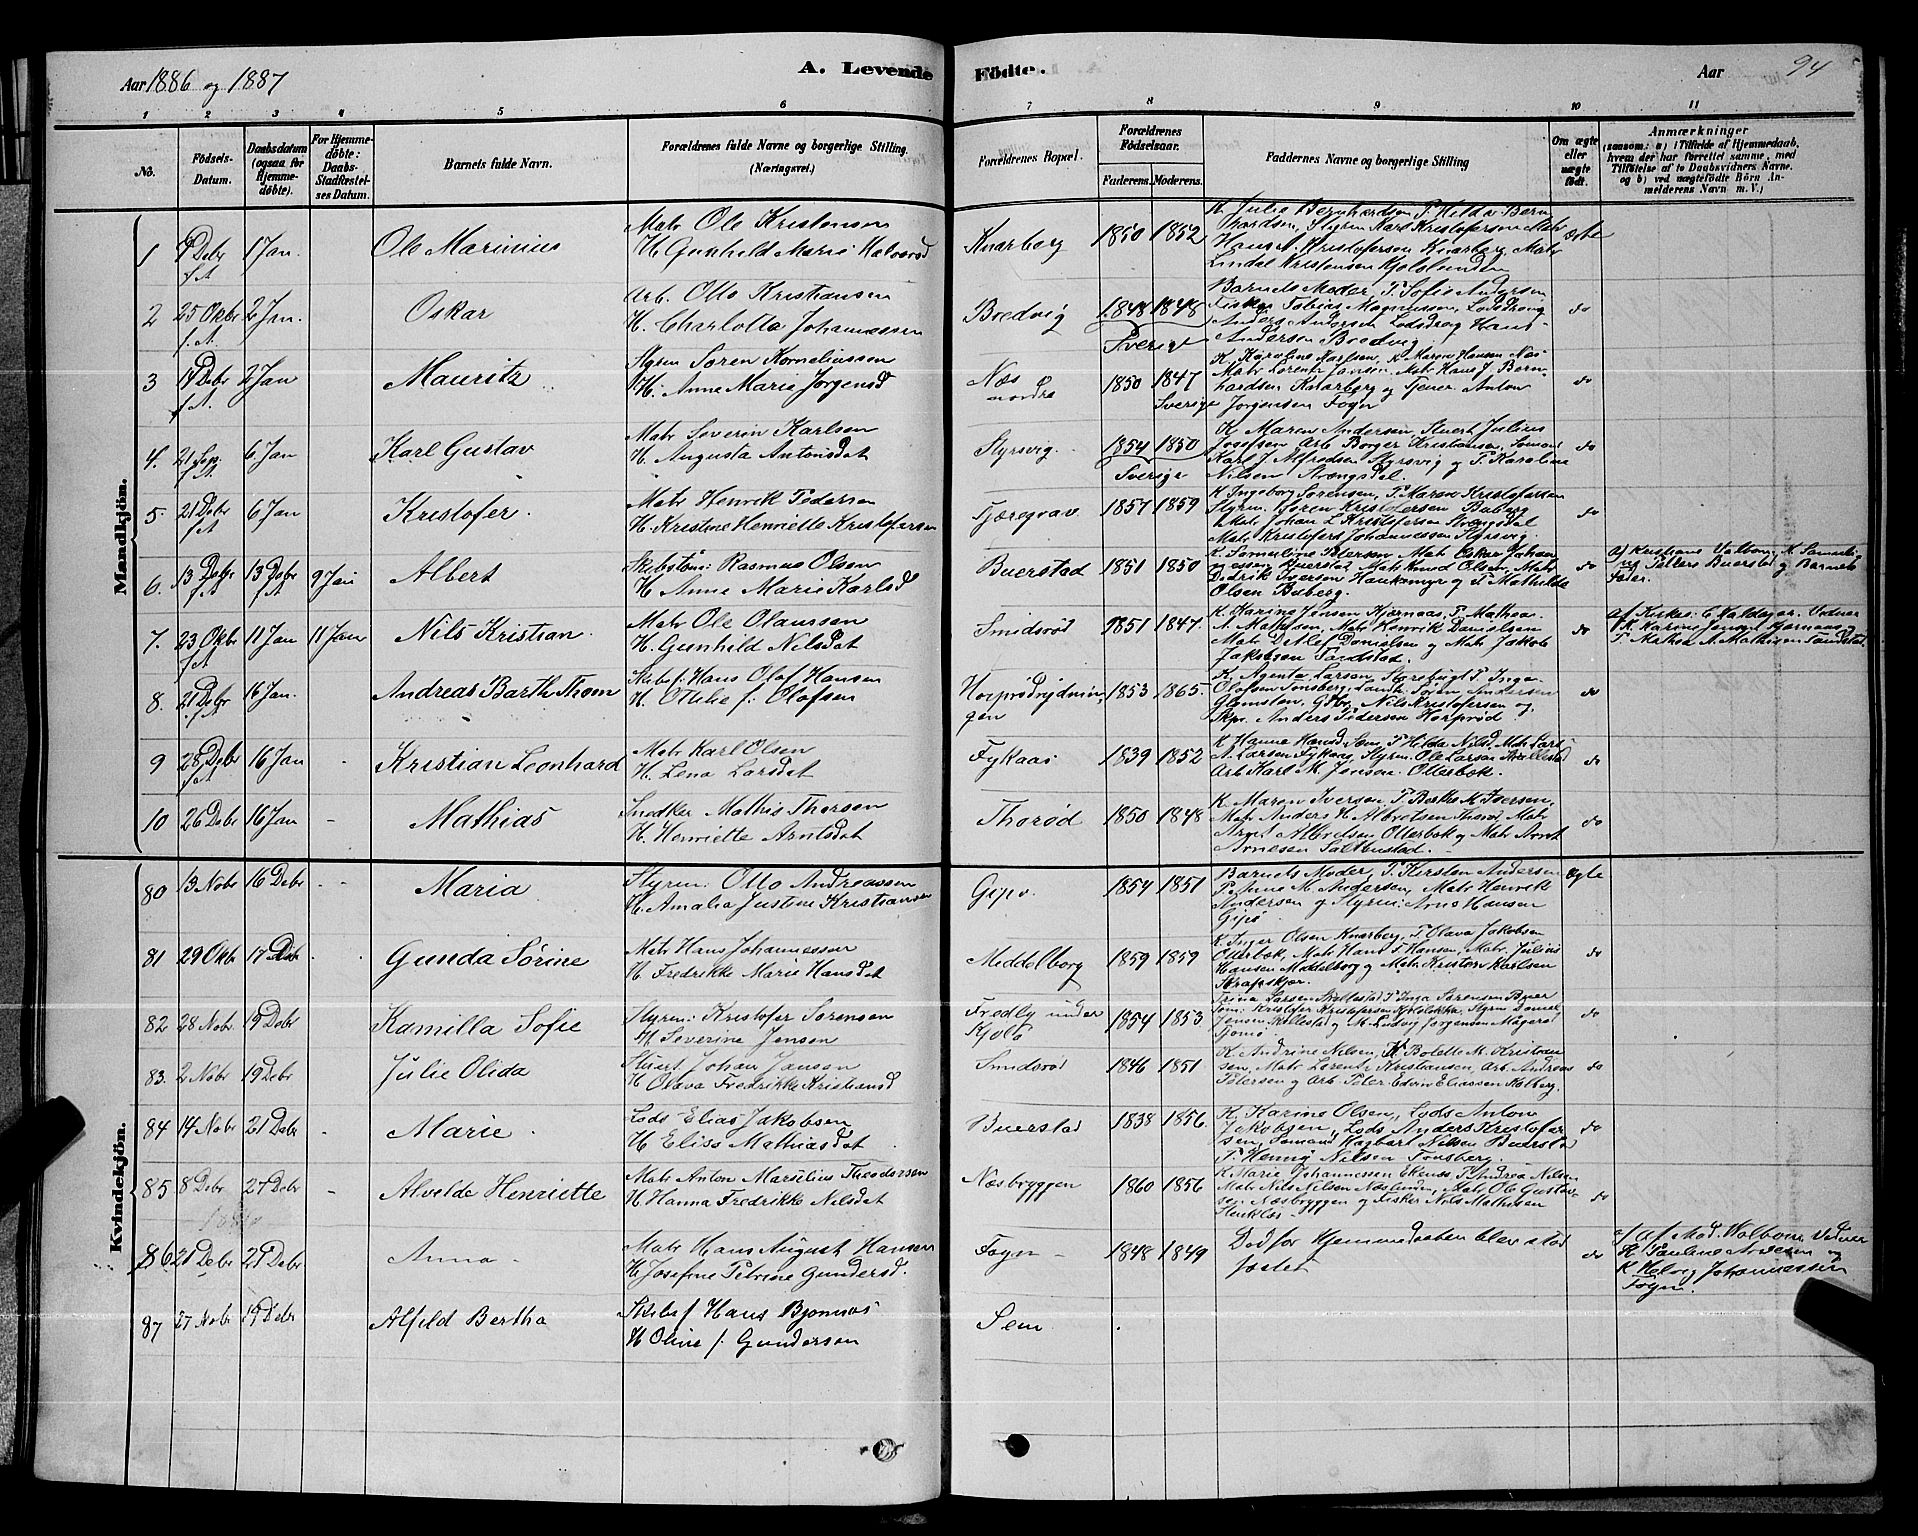 Aar 1886 og 1887
A. Levende Födte.
Aar 94
1 2 3 4 5 6 7 8 9 10 11
No.
Födsels-Datum.
Daabsdatum (ogsaa for Hjemmedøbte).
For Hjemmedøbte: Daabs-Stadfæstelses Datum.
Barnets fulde Navn.
Forældrenes fulde Navne og borgerlige Stilling. (Næringsvei.)
Forældrenes Bopæl.
Forældrenes Födselsaar.
Faderens. Moderens.
Faddernes Navne og borgerlige Stilling
Om ægte eller uægte födt.
Anmærkninger
(saasom: a) i Tilfælde af Hjemmedaab, hvem der har forrettet samme, med Tilföielse af to Daabsvidners Navne. og b) ved uægtefödte Börn Anmelderens Navn m. V.)
Mandkjön.
1 Debr f.A 1 Jan. Ole Marinius
Matr Ole Kristensen
H. Gunhild Marie Halvorsd
Knarberg 1850 1852
K. Julie Bernhardsen, P. Hilda Bern
hardsen, Styrm Karl Kristofersen Matr
Hans A. Kristofersen Knarberg, Matr
Lindal Kristensen
ægte
2 25 Okbr f.A. 2 Jan. Oskar
Arb. Otto Kristiansen
H. Charlotta Johannessen
Bredvig 1848 1848 Sverige
Barnets Moder, P. Sofie Andersen
Fisker Tobias Magnussen, Lodsdrog
Anders Andersen Lodsdrog Hans
Andersen Bredvig
do
3 14 Debr f.A. 2 Jan Mauritz
Styrm Søren Korneliussen
H. Anne Marie Jørgensd
Næs nordre 1850 1847 Sverige
K. Karoline Karlsen, K Maren Hansen Næs
Matr Lorentz Jansen, Matr Hans J. Bern-
hardsen Knarberg og Tjener Anton
Jørgensen Foyn
do
4. 21 Sep. f.A 6 Jan Karl Gustav
Matr Severin Karlsen
H. Augusta Antonsdat
Styrsvig. 1854 1850 Sverige
K Maren Andersen, Stuert Julius
Josefsen Arb Borger Kristiansen, Sømand
Karl J. Alfredsen Styrsvig og P. Karoline
Nilsen Strengsdal.
do
5. 21 Debr f.A 6 Jan Kristofer.
Matr Henrik Pedersen
H. Kristine Henriette Kristofersen
Tjæregrav 1857 1859
K Ingeborg Sørensen, P. Maren Kristofersen
Styrm. Søren Kristofersen Buberg
Matr Johan L Kristofersen Strengsdal
Matr Kristofers Johannessen Styrsvig.
do
6. 13 Debr f.A 13 Debr f.A 9 Jan Albert
Skibstøm: Rasmus Olsen
H Anne Marie Karlsd
Buerstad 1851 1850
K. Samueline Petersen Matr Oskar Johan
nessen Buerstad, Matr Knud Olsen, Matr
Didrik Iversen Haukemyr og P Mathilda
Olsen Buberg.
do
af Kristiane Valbom, K Samueli
ne Peters Buerstad og Barnets
Fader.
7. 23 Okbr f.A 11 Jan 11 Jan Nils Kristian.
Matr Ole Olaussen
H. Gunhild Nilsdat
Smidsrød 1851 1847.
K. Karine Jensen Kjærnaas, P. Mathea
N. Mathisen, Matr Henrik Danielsen
Matr Detlef Danielsen og Matr Jakob
Jakobsen Tandstad.
do
K. Karine Jensen Kjærnaas og
P. Mathea N. Mathisen Tandstad.
8. 21 Debr f.A 16 Jan. Andreas Barth Thom
Skibsf. Hans Olaf Hansen
H. Othilie f. Olafsen
Horprødrydnin-
gen 1853 1865.
K. Agenta Larsen, Storebugt P. Inga
Olafsen Tønsberg,
Glomstein, Gbr. Nils Kristofersen og
Skpr. Anders Pedersen Horprød
do
9 28 Debr f.A 16 Jan Kristian Leonhard
Matr Karl Olsen
H. Lena Larsdat
Fykaas 1839 1852
K Hanna Hansd. Sem, P. Hilda Nilsd, Matr Lars
A. Larsen Fykaas, Styrm. Ole Larsen Skallestad
Arb Karl M. Jensen. Ollerbøk.
do
10 26 Debr 16 Jan Mathias
Snedker Mathis Thorsen
H. Henriette Arntsdat
Thorød 1850 1848
K. Maren Iversen, P. M. Iversen.
Matr Anders H Albretsen Thorød, Matr
Albretsen Ollerbøk og Matr Arnt
Arnesen Saltbustad.
do
Kvindekjön.
80 13 Nobr 16 Debr Maria
Styrm: Otto Andreassen
H. Amalia Justine Kristiansen
Gipø. 1854 1851
Barnets Moder, P. Kirsten Andersen
P. Anne M. Andersen, Matr Henrik
Andersen og Styrm. Arne Hansen
Gipø
Ægte
81 29 Okbr 17 Debr Gunda Sørine
Matr Hans Johannessen
H Fredrikke Marie Hansdat
Middelborg 1859 1859
K. Inger Olsen Knarberg, P. Olava Jakobsen
Ollerbøk, Matr Hans F Hansen, Matr Julius
Hansen Middelborg og Matr Kristen Karlsen
do
82 28 Nobr 19 Debr Kamilla Sofie
Styrm: Kristofer Sørensen
H Severine Jensen
Fredly under
Kjøle 1854 1853
Trine Larsen Skallestad P Inga Sørensen Buer
Tøm: Kristofer Kristofersen Kjøløkke, Styrm Daniel
Jensen Skallestad og M. Ludvig Jørgensen Magerø
Tjømø
do
83. 2 Nobr 19 Debr Julie Olida
Stuert Johan Jansen
H Olava Fredrikke Kristiansd
Smidsrød 1846 1851
K. Andrine Nilsen, K Bolette M. Kristian
sen, Matr Lorentz Kristiansen, Arb. Andreas
Petersen og Arb. Peter Edvin Eliassen Kalberg.
do
84 14 Nobr 21 Debr Marie.
Lods Elias Jakobsen
H Elise Mathiasdat
Buerstad 1838 1856.
K. Karine Olsen, Lods Anton
Jakobsen, Lods Anders Kristofer
sen, Sømand Hagbart Nilsen Buerstad
P. Henny Nilsen Tønsberg.
do
85 8 Debr 27 Debr Alvelde Henriette
Matr Anton Marselius Theodorsen
H. Hanna Fredrikke Nilsdat
Næsbryggen 1860 1856
K Marie Johannessen Ekenes P Andrea Nilsen
Matr Nils Nilsen Næslinden, Matr Ole Gustav
sen Næsbryggen og Fisker Nils Mathisen
do
86 21 Debr 21 Debr Anna
Matr Hans August Hansen
H. Josefine Petrine Gundersd.
Foyn 1848 1849
Død før Hjemmedaaben blev stad
fæstet
do
af Jord. Valbom, Vidner
K. Pauline Andersen og
K Helvig Johannessen
Foyn.
87 27 Nobr 19 Debr Alfild Bertha
Skibsf Hans Bjønnes
H Oline f. Gundersen
Sem